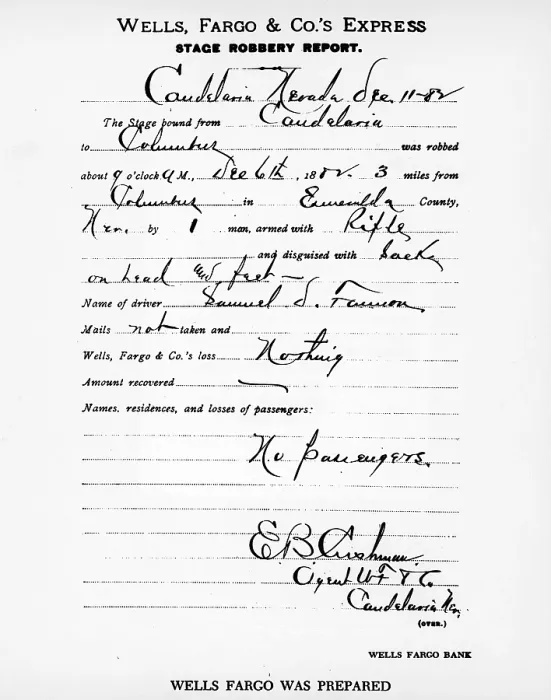 WELLS, FARGO & CO.'S EXPRESS
STAGE ROBBERY REPORT.
Candelaria Nevada Dec 11-82
The Stage bound from Candelaria
to Columbus was robbed
about 9 o'clock A M., Dec 6th, 1882. 3 miles from
Columbus in Esmeralda County,
Nev. by 1 man, armed with Rifle
and disguised with Sacks
on head and feet —
Name of driver Samuel S. Tannon
Mails not taken and
Wells, Fargo & Co.'s loss Nothing
Amount recovered —
Names, residences, and losses of passengers:
No passengers.
E B Cushman
Agent W F & Co.
Candelaria Nev.
(OVER.)
WELLS FARGO BANK
WELLS FARGO WAS PREPARED